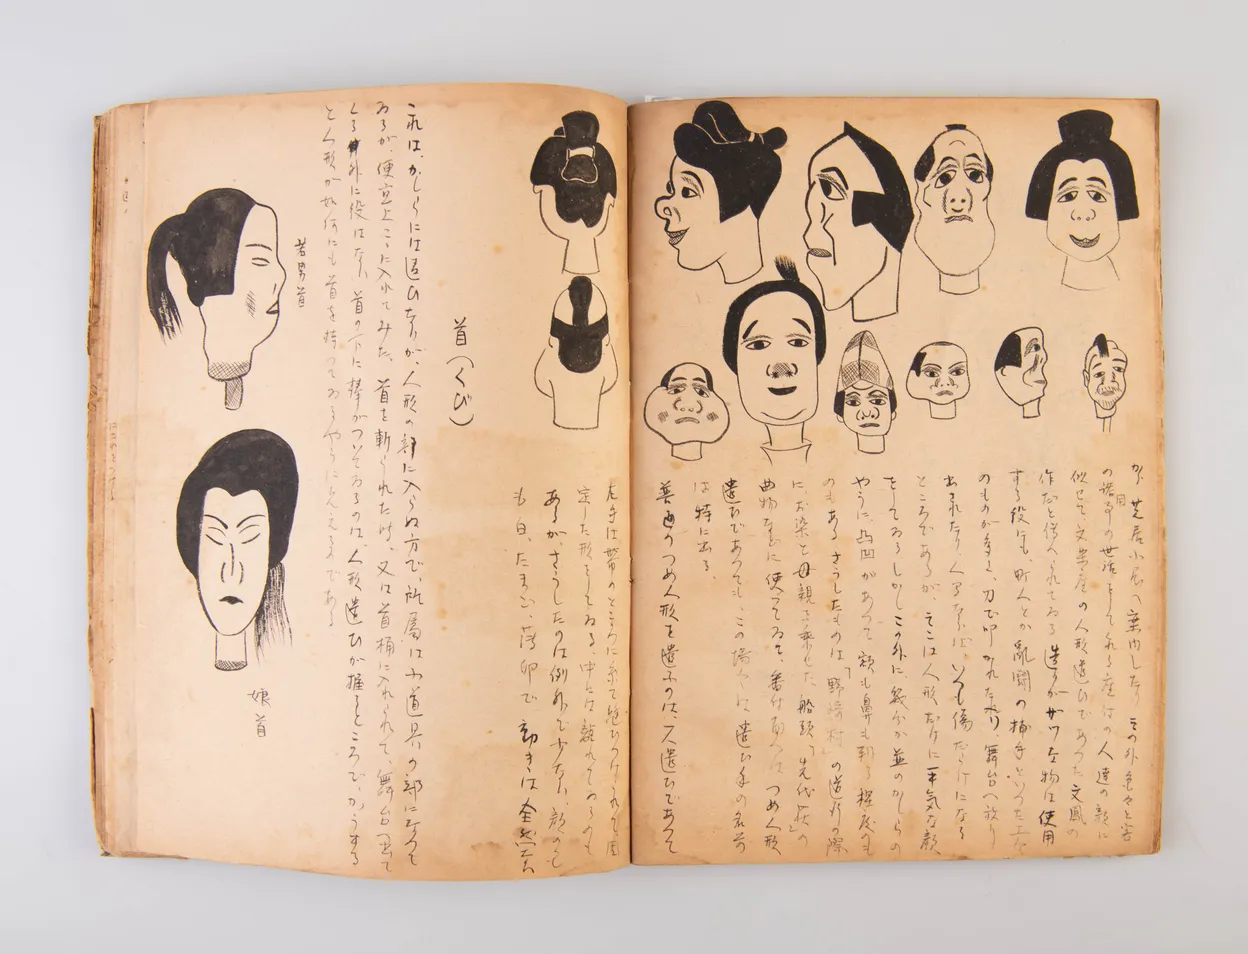 か、芝居小屋へ案内したり、その外色々と客
の諸用の世話をしてくれる座付の人達の顔に
似せて文楽座の人形遣ひであつた文鳳の
作だと傳へられてゐる 物は使用
する役にも、町人とか亂鬪の捕手といつた
のものが多く、刀で叩かれたり、舞台へ放り
出されたり いつも傷だらけになる
ところであるが、そこは人形だけに平気な顔
をしてゐるしかしこの外に、幾分か並のかしらの
やうに、凸凹があつて 額も鼻も判る程度のも
のもある さうしたものは「野崎村」の道行の際
に、お染と母親を乗せた、船頭「先代萩の」
曲物などに使つてゐて、番付面は つめ人形
遣ひであつても、この場合は遣ひ手の名前
は特に出る。
普通のつめ人形を遣ふのは、一人遣ひであつて
左手は帯のところに糸で結びつけられて固
定した形をしてゐる。中には離れてゐるのも
あるが、さうしたのは例外で少ない、顔の
も たまご、 で、動きは全然
首(くび)
これは、かしらには違ひないが、人形の部に入らぬ方で、所属は小道具の部になつて
ゐるが、便宜上こゝに入れてみた、首を斬られた時、又は首桶に入れられて、舞台へ出て
くる外に役はない、首の下に棒がついてゐるのは、人形遣ひが握るところで、かうする
と人形が如何にも首を持つてゐるやうに見えるのである。
若男首
娘首